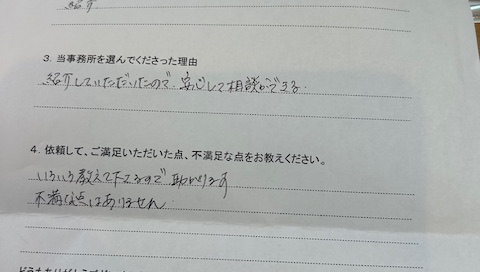 紹介
3. 当事務所を選んでくださった理由
紹介していただいたので、安心して相談ができる.
4. 依頼して、ご満足いただいた点、不満足な点をお教えください。
いろいろ教えて下さるので助かります
不満な点はありません